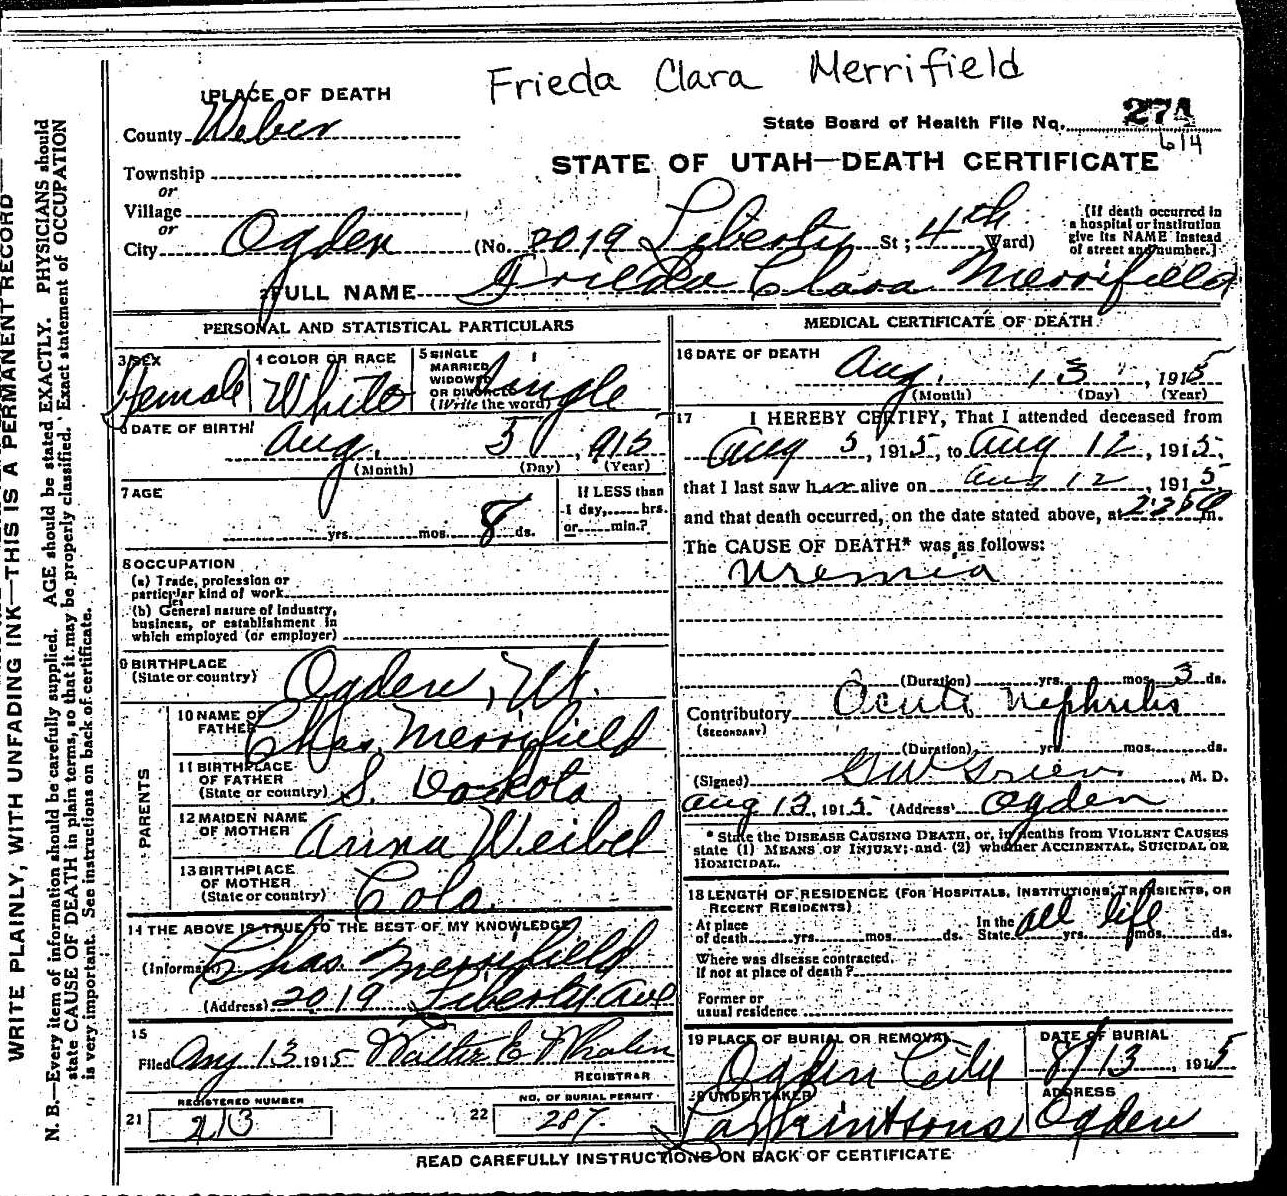 Frieda Clara Merrifield
1 PLACE OF DEATH
County Weber
State Board of Health File No. 274
614
STATE OF UTAH—DEATH CERTIFICATE
Township
or
Village
or
City Ogden (No. 2019 Liberty St; 4th Ward)
(If death occurred in
a hospital or institution
give its NAME instead
of street and number.]
2 FULL NAME Frieda Clara Merrifield
PERSONAL AND STATISTICAL PARTICULARS
3 SEX Female
4 COLOR OR RACE White
5 SINGLE
MARRIED
WIDOWED
OR DIVORCED
(Write the word) Single
6 DATE OF BIRTH
Aug. 5, 1915
(Month) (Day) (Year)
7 AGE
yrs. mos. 8 ds.
If LESS than
1 day, hrs.
or min.?
8 OCCUPATION
(a) Trade, profession or
particular kind of work
(b) General nature of industry,
business, or establishment in
which employed (or employer)
9 BIRTHPLACE
(State or country) Ogden, Ut.
PARENTS
10 NAME OF
FATHER Chas. Merrifield
11 BIRTHPLACE
OF FATHER
(State or country) S. Dakota
12 MAIDEN NAME
OF MOTHER Anna Weibel
13 BIRTHPLACE
OF MOTHER
(State or country) Colo.
14 THE ABOVE IS TRUE TO THE BEST OF MY KNOWLEDGE
(Informant) Chas. Merrifield
(Address) 2019 Liberty Ave
15
Filed Aug 13 1915 Walter E Whalen
REGISTRAR
21 REGISTERED NUMBER
213
22 NO. OF BURIAL PERMIT
287.
MEDICAL CERTIFICATE OF DEATH
16 DATE OF DEATH
Aug. 13, 1915
(Month) (Day) (Year)
17 I HEREBY CERTIFY, That I attended deceased from
Aug 5, 1915, to Aug 12, 1915,
that I last saw her alive on Aug 12, 1915
and that death occurred, on the date stated above, at m.
The CAUSE OF DEATH* was as follows:
Uremia
(Duration) yrs. mos. 3 ds.
Contributory Acute Nephritis
(SECONDARY)
(Duration) yrs. mos. ds.
(Signed) G W Green, M. D.
Aug 13, 1915 (Address) Ogden
* State the DISEASE CAUSING DEATH, or, in deaths from VIOLENT CAUSES
state (1) MEANS OF INJURY; and (2) whether ACCIDENTAL, SUICIDAL OR
HOMICIDAL.
18 LENGTH OF RESIDENCE (FOR HOSPITALS, INSTITUTIONS, TRANSIENTS, OR
RECENT RESIDENTS)
At place
of death yrs. mos. ds.
In the
State all life yrs. mos. ds.
Where was disease contracted,
if not at place of death?
Former or
usual residence
19 PLACE OF BURIAL OR REMOVAL
Ogden City
DATE OF BURIAL
8/13, 1915
20 UNDERTAKER
Larkin & Sons
ADDRESS
Ogden
READ CAREFULLY INSTRUCTIONS ON BACK OF CERTIFICATE
WRITE PLAINLY, WITH UNFADING INK—THIS IS A PERMANENT RECORD
N. B.—Every item of information should be carefully supplied. AGE should be stated EXACTLY. PHYSICIANS should
state CAUSE OF DEATH in plain terms, so that it may be properly classified. Exact statement of OCCUPATION
is very important. See instructions on back of certificate.